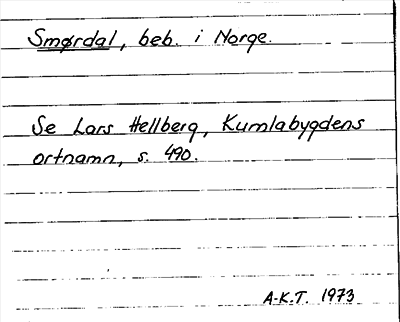 Smørdal, beb. i Norge.
Se Lars Hellberg, Kumlabygdens
ortnamn, s. 490.
A-K.T. 1973